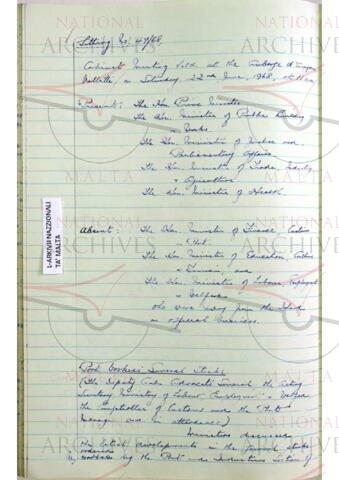 Sitting No. 47/68
Cabinet Meeting held at the Auberge d'Aragon,
Valletta, on Saturday, 22nd June, 1968, at 11 a.m.
Present: The Hon. Prime Minister
The Hon. Minister of Public Building
& Works
The Hon. Minister of Justice and
Parliamentary Affairs
The Hon. Minister of Trade, Industry
& Agriculture
The Hon. Minister of Health.
Absent: The Hon. Minister of Finance, Customs
& Port
The Hon. Minister of Education, Culture
& Tourism, and
The Hon. Minister of Labour, Employment
& Welfare
who were away from the Island
on official business.
Port Workers' General Strike
(The Deputy Crown Advocate General, the Acting
Secretary Ministry of Labour, Employment & Welfare,
the Comptroller of Customs and the
Manager were in attendance)
Ministers discussed
the latest developments in the general strike
ordered
by the Port and Industries Section of
L-ARKIVJI NAZZJONALI
TA' MALTA
NATIONAL
ARCHIVES
MALTA